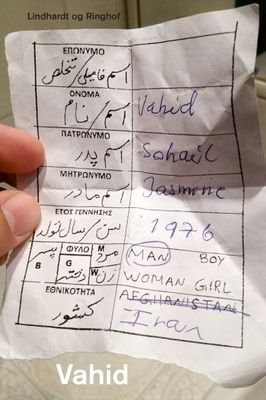 Lindhardt og Ringhof
ΕΠΩΝΥΜΟ
اسم فامیلی/تخلص
ΟΝΟΜΑ
اسم/نام Vahid
ΠΑΤΡΩΝΥΜΟ
اسم پدر Sohail
ΜΗΤΡΩΝΥΜΟ
اسم مادر Jasmine
ΕΤΟΣ ΓΕΝΝΗΣΗΣ
سن/سال تولد 1976
ΦΥΛΟ
پسر B دختر G مرد M زن W
MAN BOY
WOMAN GIRL
ΕΘΝΙΚΟΤΗΤΑ
کشور
AFGHANISTAN
Iran
Vahid